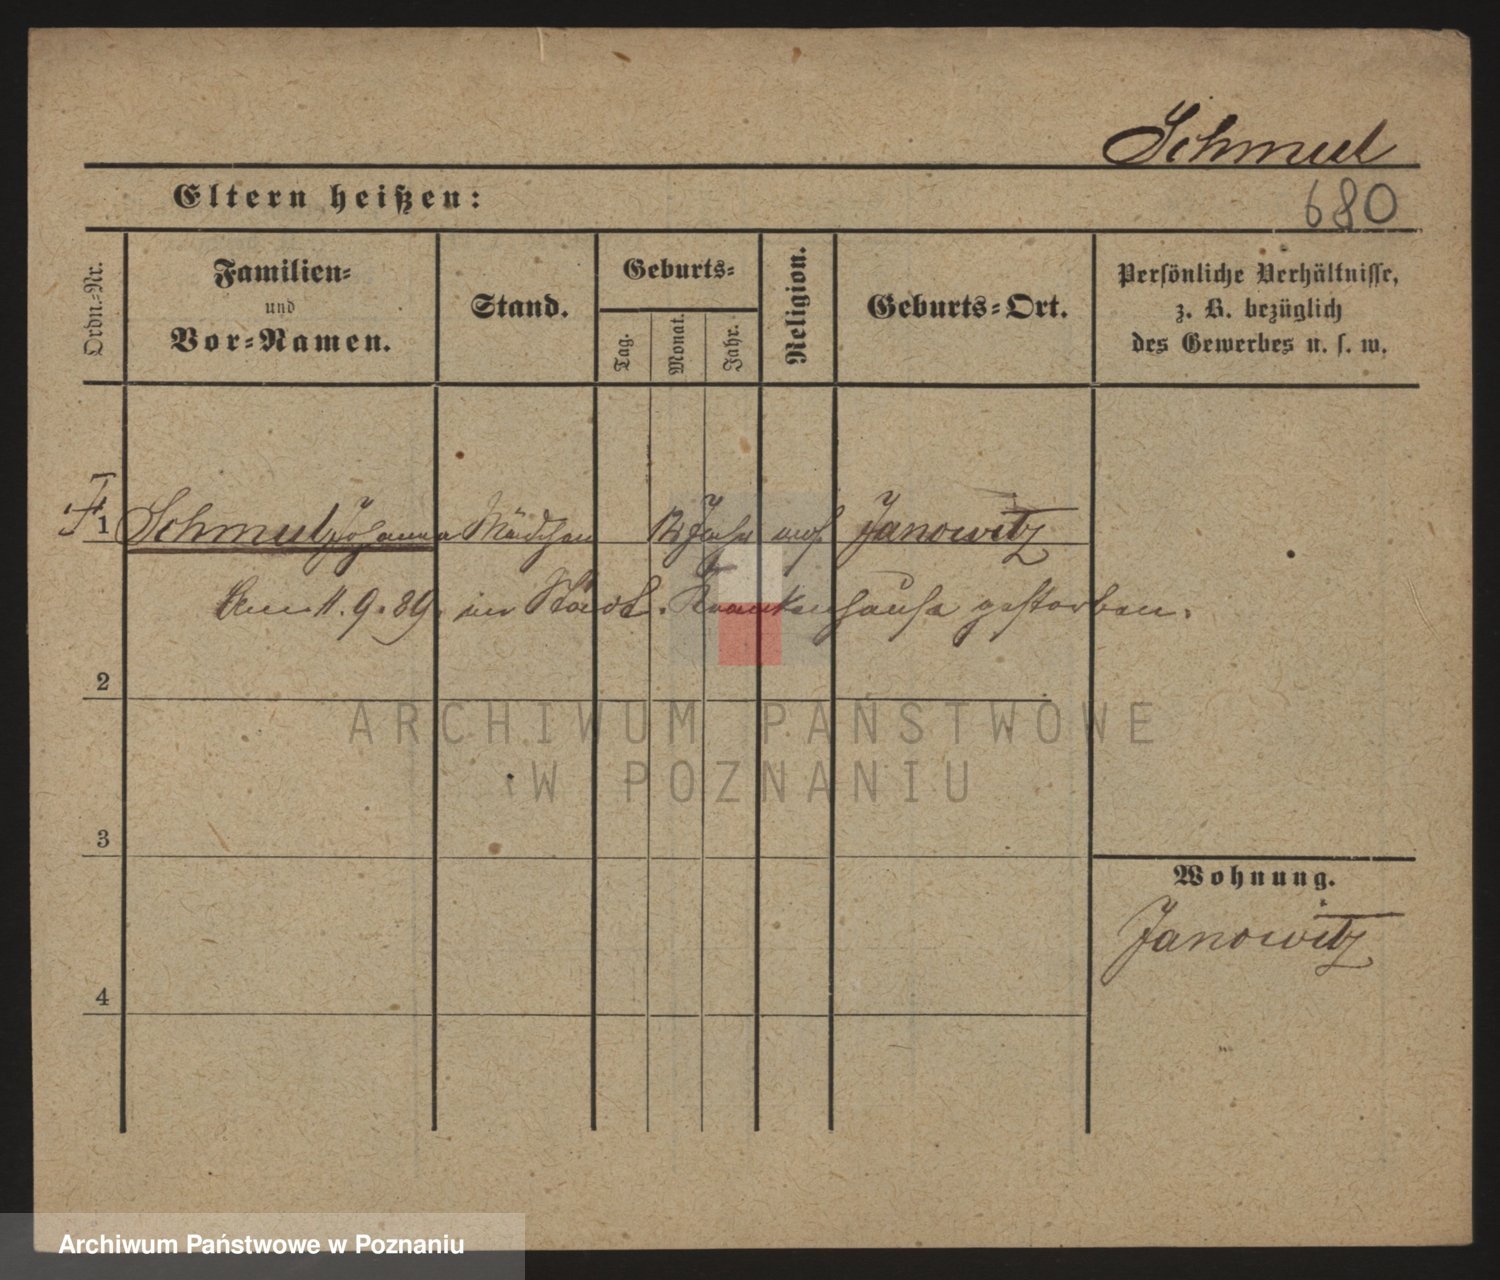 Schmul
Eltern heißen:
680
Ordn.-Nr.
Familien-
und
Vor-Namen.
Stand.
Geburts-
Tag.
Monat.
Jahr.
Religion.
Geburts-Ort.
Persönliche Verhältnisse,
z. B. bezüglich
des Gewerbes u. s. w.
1 Schmul Johanna Mädchen 12 Jahr Janowitz
Am 11.9.89. im Städt. Krankenhause gestorben.
2
ARCHIWUM PAŃSTWOWE
W POZNANIU
3
Wohnung.
Janowitz
4
Archiwum Państwowe w Poznaniu